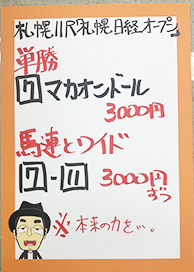 札幌11R『札幌日経オープン』
単勝
7 マカオンドール
3000円
馬連とワイド
7-11 3000円
ずつ
※本来の力を…。